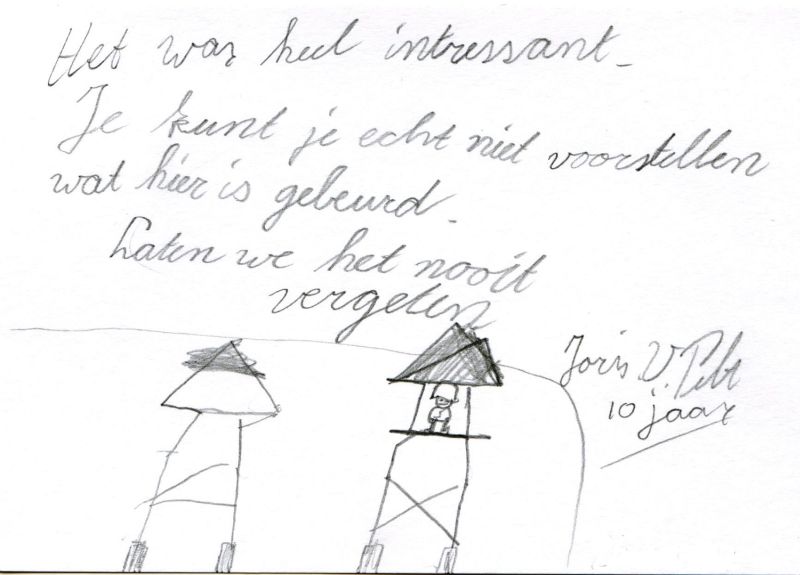 Het was heel intressant.
Je kunt je echt niet voorstellen
wat hier is gebeurd.
Laten we het nooit
vergeten
Joris V.
10 jaar